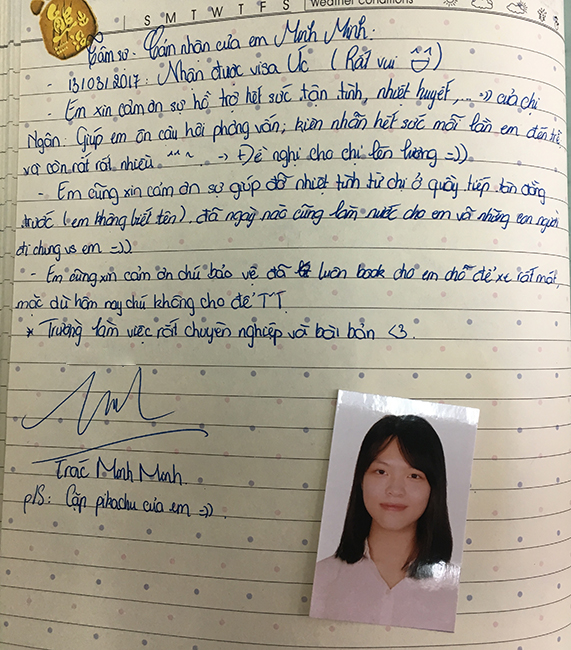 S M T W T F S Weather conditions
Tâm sự - Cảm nhận của em Minh Minh.
- 13/03/2017: Nhận được visa Úc (Rất vui ^^)
- Em xin cảm ơn sự hỗ trợ hết sức tận tình, nhiệt huyết,... =)) của chị
Ngân. Giúp em ôn câu hỏi phỏng vấn, kiên nhẫn hết sức mỗi lần em đến trễ,
và còn rất rất nhiều ^^ ... → Đề nghị cho chị lên lương =)).
- Em cũng xin cảm ơn sự giúp đỡ nhiệt tình từ chị ở quầy tiếp tân đằng
trước (em không biết tên), đã ngày nào cũng làm nước cho em và những con người
đi chung vs em =))
- Em cũng xin cảm ơn chú bảo vệ đã luôn book cho em chỗ để xe rất mát,
mặc dù hôm nay chú không cho để TT.
* Trường làm việc rất chuyên nghiệp và bài bản <3.
Trác Minh Minh.
p/s: Cặp pikachu của em =)).